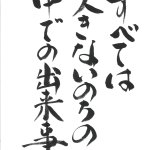 すべては
大きないのちの
中での出来事